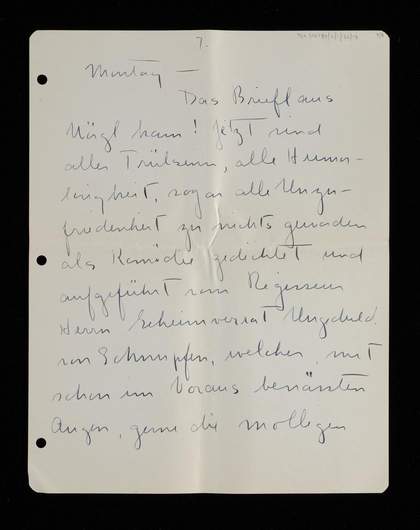 7.
Montag —
Das Briefl aus
Nägl kam! Jetzt sind
aller Trübsinn, alle Humor-
losigkeit, sogar alle Unzu-
friedenheit zu nichts geworden
als Komödie gedichtet und
aufgeführt vom Regisseur
Herrn Geheimverrat Ungeduld
von Schnupfen, welcher, mit
schon im Voraus benäßten
Augen, gerne die molligen